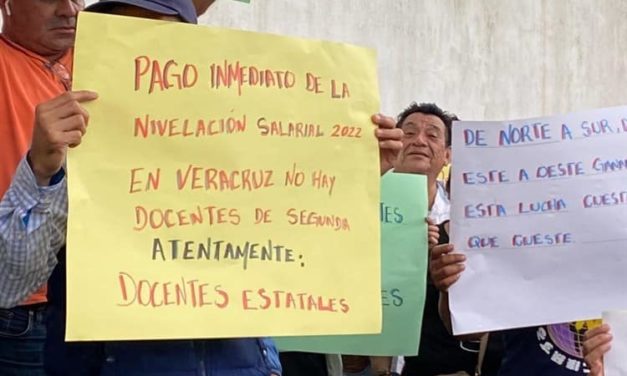 PAGO INMEDIATO DE LA
NIVELACIÓN SALARIAL 2022
EN VERACRUZ NO HAY
DOCENTES DE SEGUNDA
ATENTAMENTE:
DOCENTES ESTATALES
DE NORTE A SUR, D
ESTE A OESTE GANA
ESTA LUCHA CUEST
QUE CUESTE.